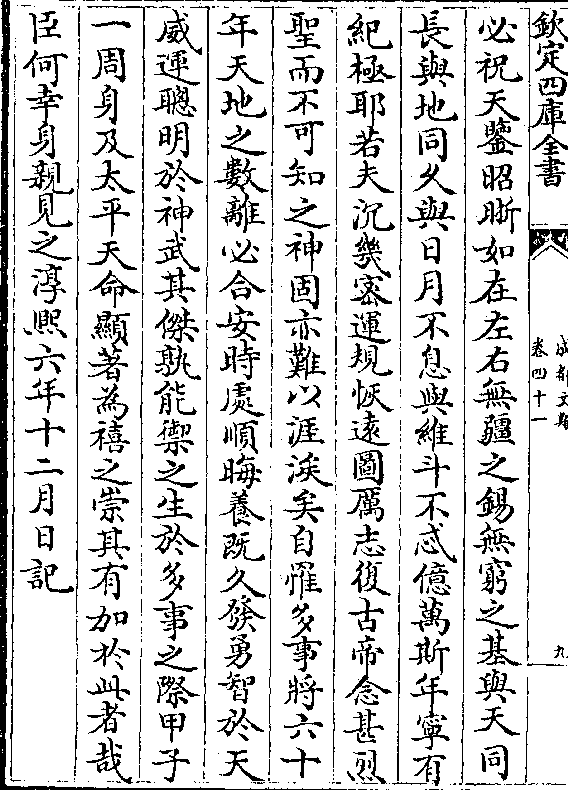 欽定四庫全書
成都文類
卷四十一
九
必祝天鑒昭晰如在左右無疆之錫無窮之基與天同
長與地同久與日月不息與維斗不忒億萬斯年寧有
紀極耶若夫沉幾密運規恢逺圖厲志復古帝念甚烈
聖而不可知之神固亦難以涯涘矣自懼多事將六十
年天地之數離必合安時處順晦養既久發勇智於天
威運聰明於神武其傑孰能禦之生於多事之際甲子
一周身及太平天命顯著為禧之崇其有加於此者哉
臣何幸身親見之淳熙六年十二月日記